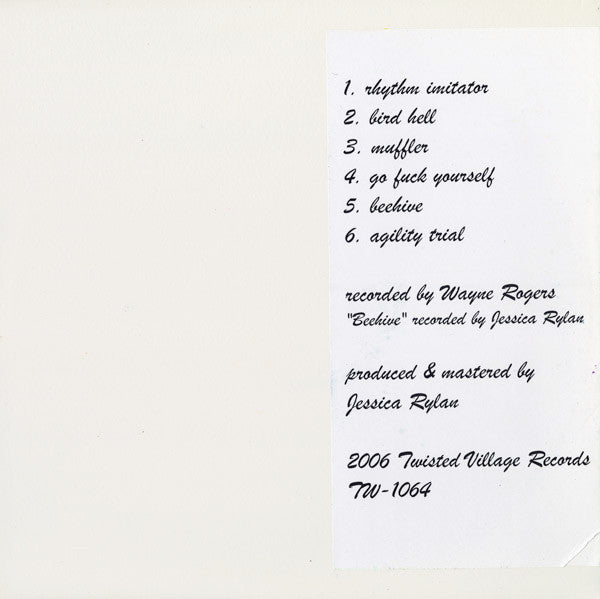 1. rhythm imitator
2. bird hell
3. muffler
4. go fuck yourself
5. beehive
6. agility trial
recorded by Wayne Rogers
"Beehive" recorded by Jessica Rylan
produced & mastered by
Jessica Rylan
2006 Twisted Village Records
TW-1064